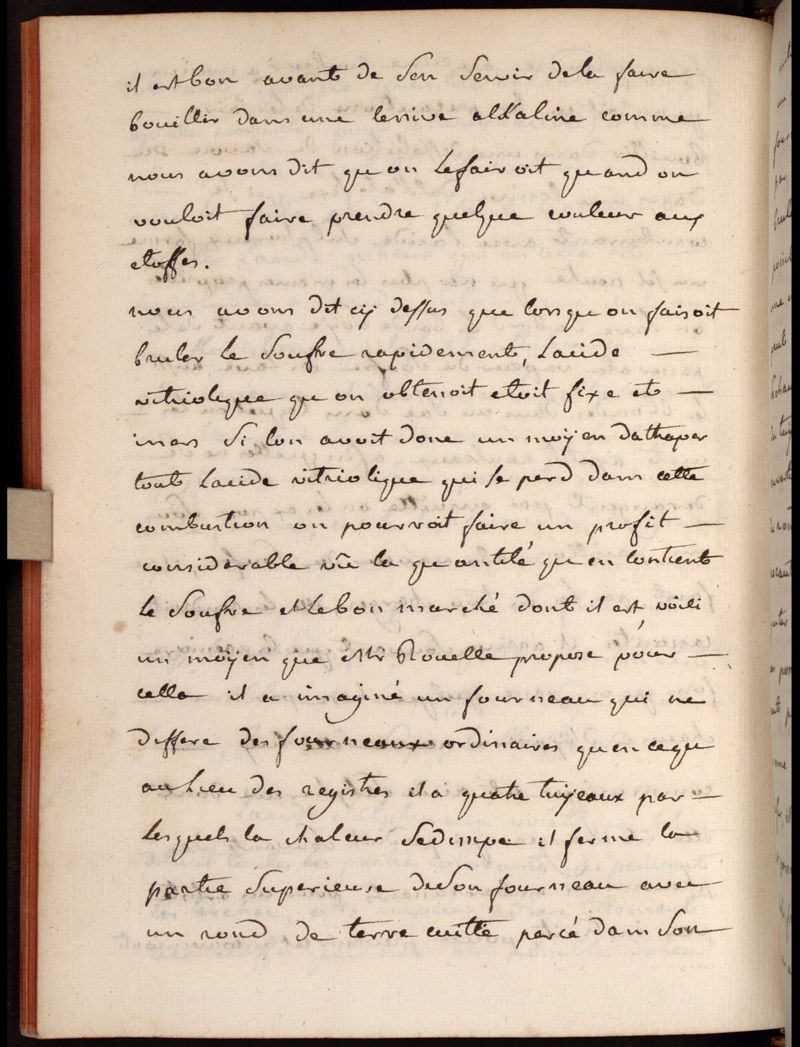 il est bon avant de sen servir de la faire
bouillir dans une lessive alkaline comme
nous avons dit quon le fairoit quand on
vouloit faire prendre quelque couleur aux
etoffes.
nous avons dit cy dessus que lorsquon faisoit
bruler le soufre rapidement, lacide —
vitriolique quon obtenoit etoit fixe et —
mais si lon avoit donc un moÿen dattraper
tout lacide vitriolique qui se perd dans cette
combustion on pourroit faire un profit —
considerable vû la quantité quen contient
le soufre et le bon marché dont il est, voici
un moÿen que Mr Rouelle propose pour —
cella il a imaginé un fourneau qui ne
differe des fourneaux ordinaires quen cequ
au lieu des registres il a quatre tuÿeaux par —
lesquels la chaleur se dissipe il ferme la
partie superieure de son fourneau avec
un rond de terre cuitte percé dans son